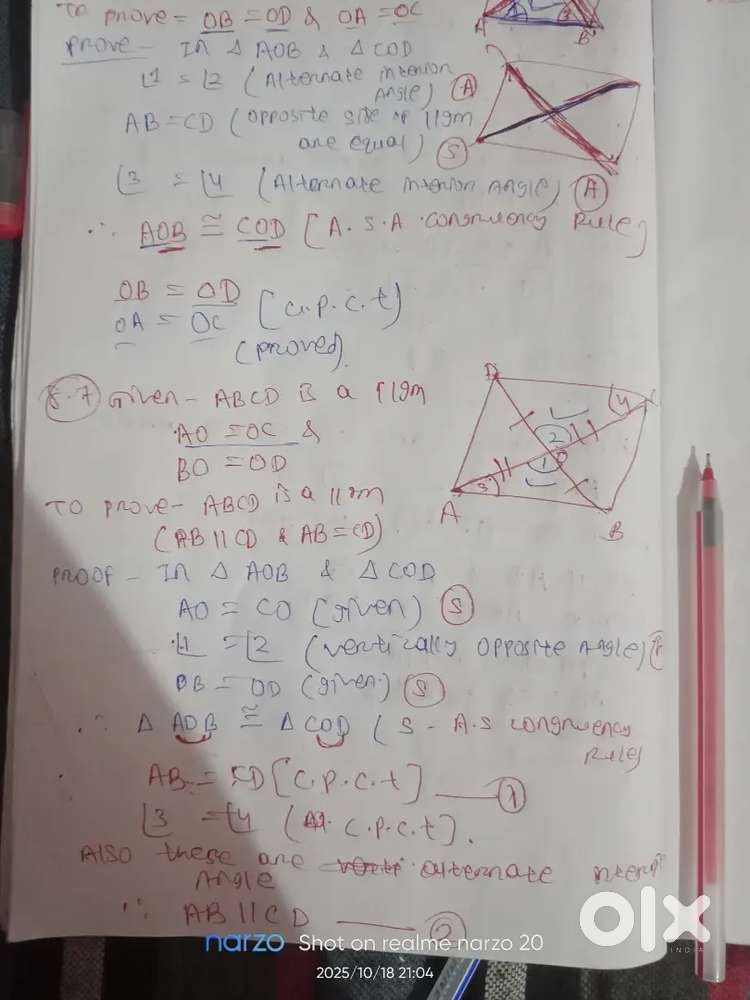 To prove = OB = OD & OA = OC
Prove - In Δ AOB & Δ COD
∠1 = ∠2 (Alternate interior Angle) (A)
AB = CD (opposite side of ||gm are equal) (S)
∠3 = ∠4 (Alternate interior Angle) (A)
∴ AOB ≅ COD [A.S.A congruency Rule]
OB = OD
OA = OC [C.p.c.t]
(proved)
8.7 Given - ABCD is a ||gm
AO = OC &
BO = OD
TO prove - ABCD is a ||gm
(AB || CD & AB = CD)
PROOF - In Δ AOB & Δ COD
AO = CO (given) (S)
∠1 = ∠2 (vertically opposite Angle)
OB = OD (given) (S)
∴ Δ AOB ≅ Δ COD (S-A.S congruency Rule)
AB = CD [C.p.c.t] (1)
∠3 = ∠4 (C.p.c.t).
Also these are alternate Angle
∴ AB || CD (2)
A
B
D
A
B
O
1
2
3
4
olx
INDIA
narzo Shot on realme narzo 20
2025/10/18 21:04